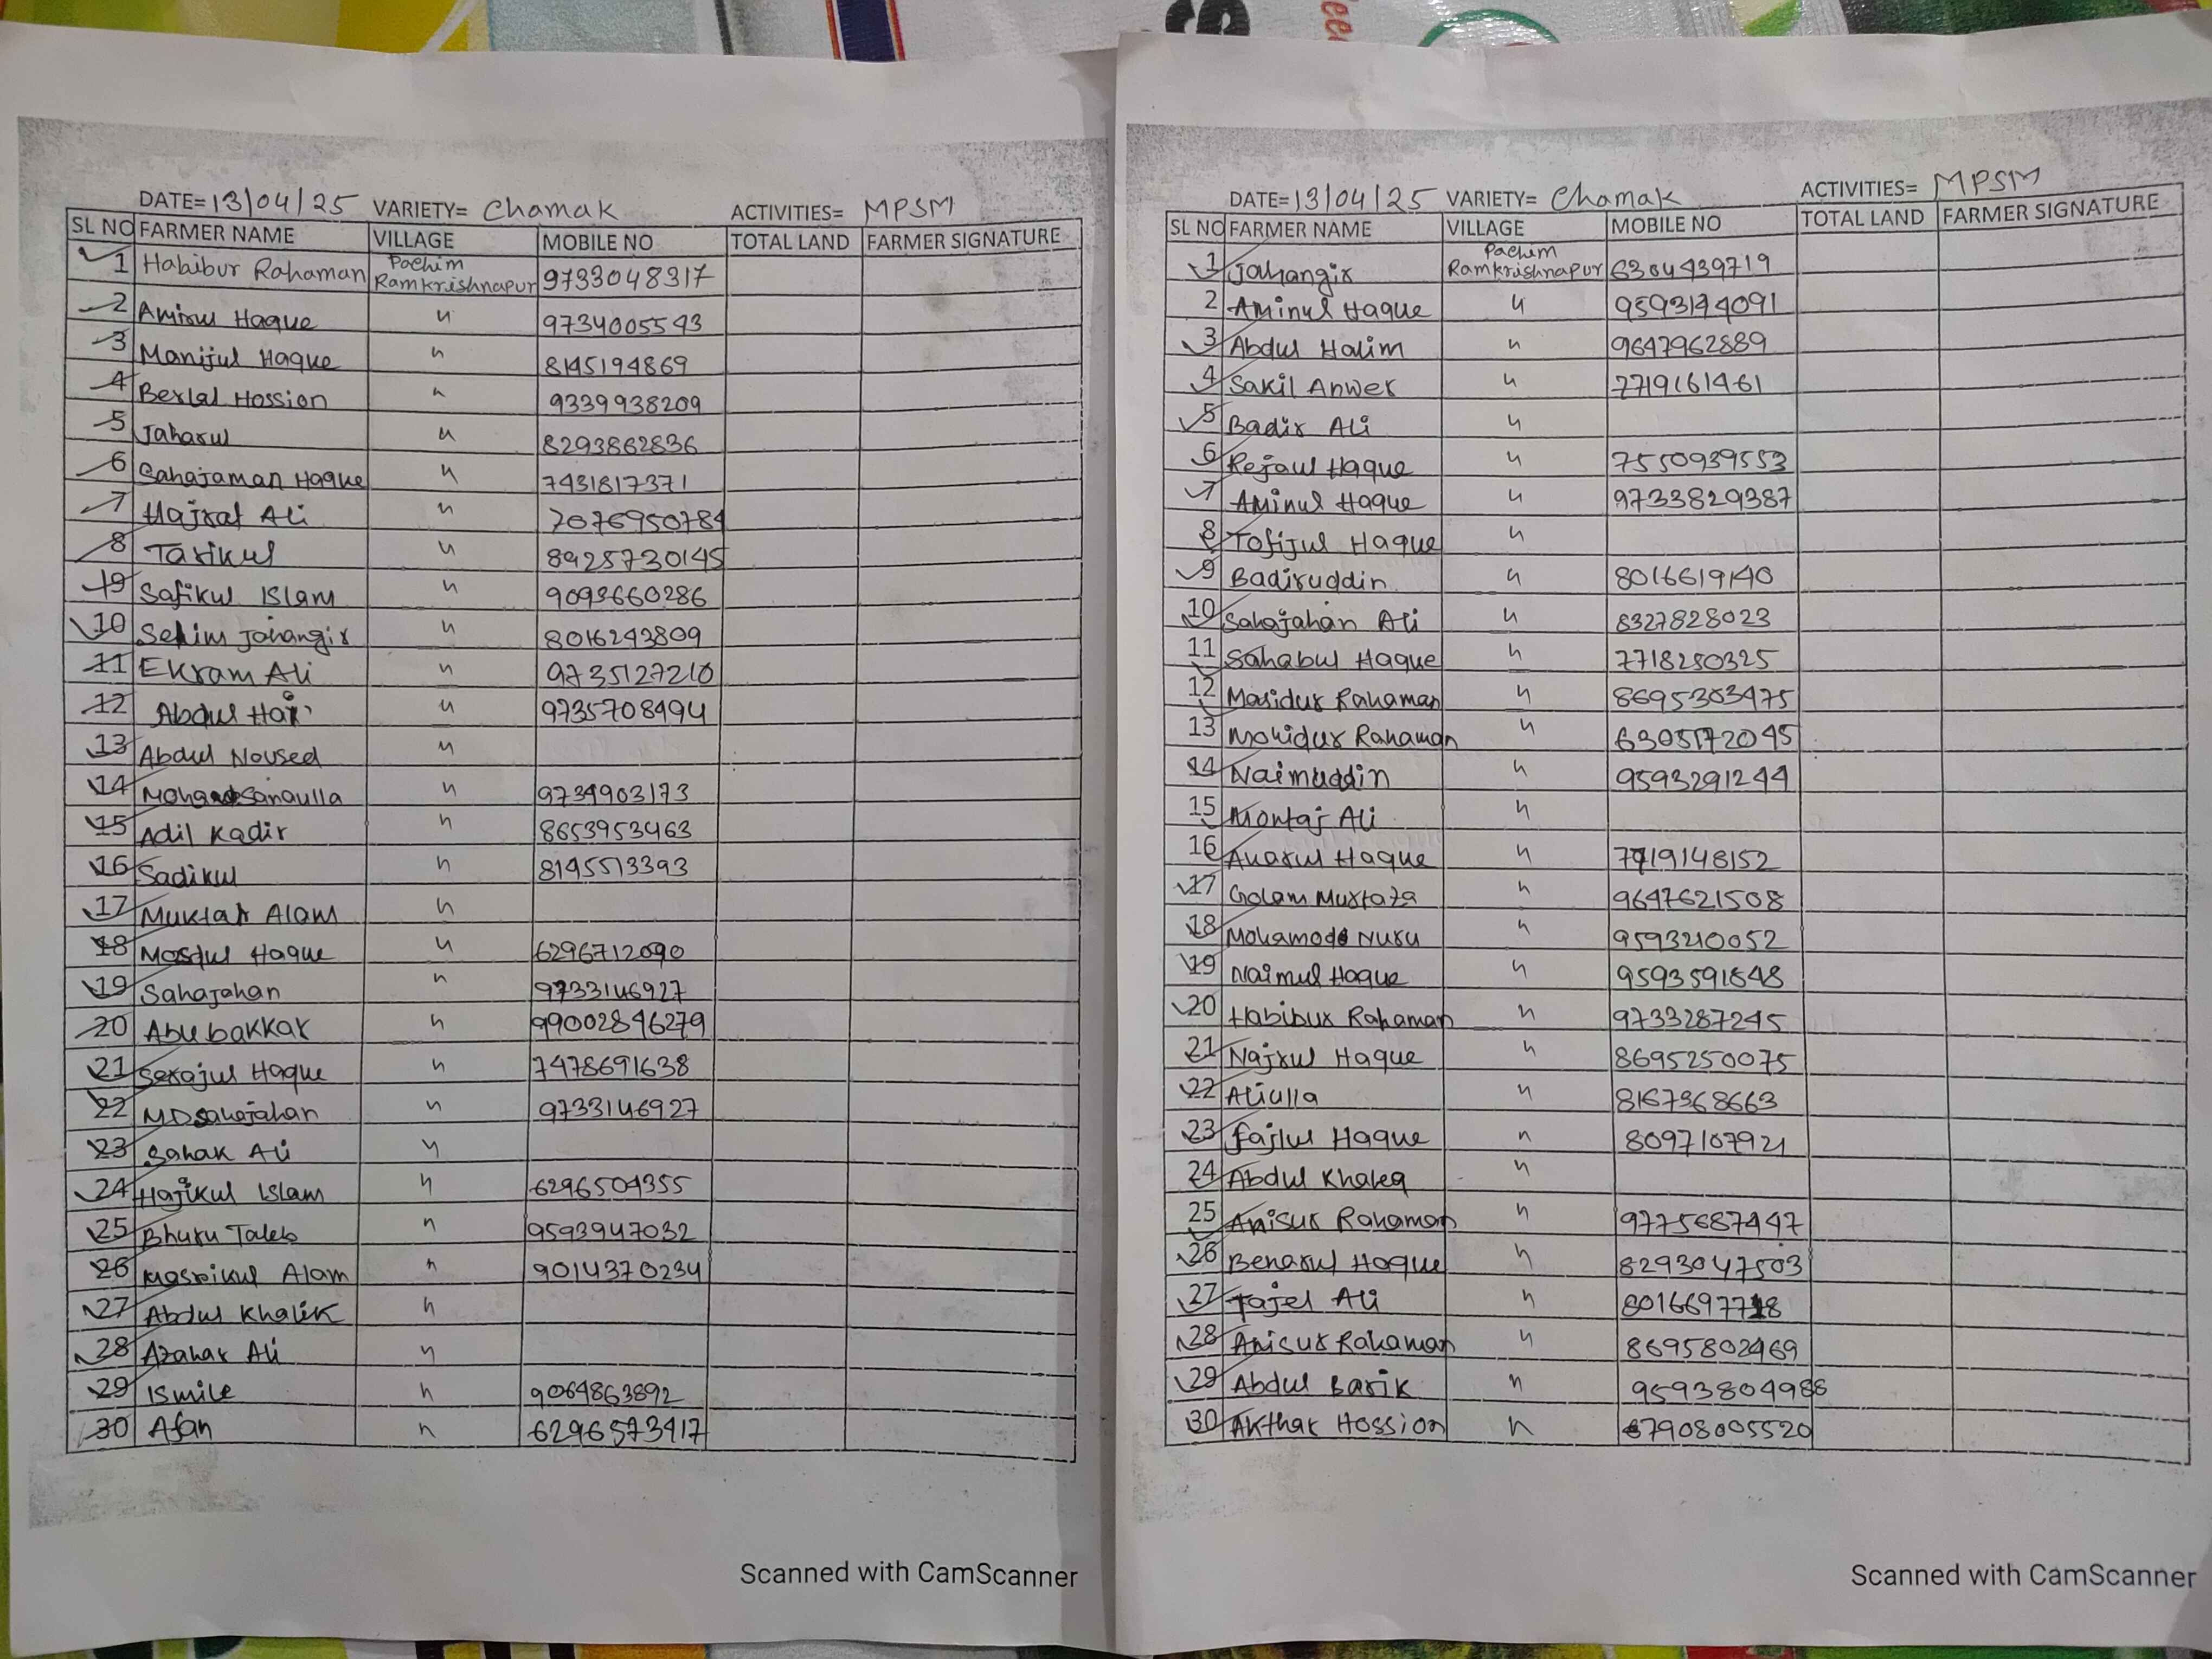 DATE= 13/04/25 VARIETY= Chamak ACTIVITIES= MPSM
SL NO FARMER NAME VILLAGE MOBILE NO TOTAL LAND FARMER SIGNATURE
1 Habibur Rahaman Pachim Ramkrishnapur 9733048317
2 Amirul Haque " 9734005543
3 Manijul Haque " 8145194869
4 Berlal Hossion " 9339938209
5 Jaharul " 8293862836
6 Sahajaman Haque " 7431817371
7 Hajrat Ali " 7076950784
8 Tarikul " 8925730145
9 Safikul Islam " 9093660286
10 Selim Jahangir " 8016243809
11 Ekram Ali " 9735127210
12 Abdul Hai " 9735708494
13 Abdul Noused "
14 Sanaulla " 9734903173
15 Adil Kadir " 8653953463
16 Sadikul " 8145513393
17 Muktar Alam "
18 Haque " 6296712090
19 Sahajahan " 9733146927
20 Abubakkar " 99002846279
21 Serajul Haque " 7478691638
22 MD Sahajahan " 9733146927
23 Sahak Ali "
24 Hajikul Islam " 6296504355
25 Bhuru Taleb " 9593947032
26 Alam " 9014370234
27 Abdul Khalik "
28 Azahar Ali "
29 Ismile " 9064863892
30 Afan " 6296573417
Scanned with CamScanner
DATE= 13/04/25 VARIETY= Chamak ACTIVITIES= MPSM
SL NO FARMER NAME VILLAGE MOBILE NO TOTAL LAND FARMER SIGNATURE
1 Jahangir Pachim Ramkrishnapur 6304439719
2 Aminul Haque " 9593144091
3 Abdul Halim " 9647962889
4 Sakil Anwer " 7719161461
5 Badir Ali "
6 Rejaul Haque " 7550939553
7 Aminul Haque " 9733829387
8 Tofijul Haque "
9 Badiruddin " 8016619140
10 Sahajahan Ali " 8327828023
11 Sahabul Haque " 7718250325
12 Masidur Rahaman " 8695303475
13 Mohidur Rahaman " 6305172045
14 Naimuddin " 9593291244
15 Montaj Ali "
16 Anarul Haque " 7719148152
17 Golam Murtaza " 9647621508
18 Nuru " 9593210052
19 Naimul Haque " 9593591848
20 Habibur Rahaman " 9733287245
21 Najrul Haque " 8695250075
22 Aliulla " 8167368663
23 Fajlur Haque " 8097107921
24 Abdul Khaleq "
25 Anisur Rahaman " 9775687447
26 Benarul Haque " 8293047503
27 Tajel Ali " 8016697718
28 Anisur Rahaman " 8695802469
29 Abdul Barik " 9593804988
30 Akthar Hossion " 7908005520
Scanned with CamScanner